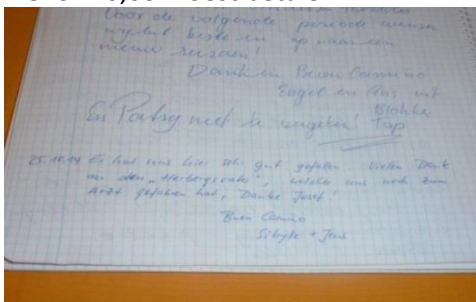 voor de volgende periode wensen
wij het beste en op naar een
nieuw seizoen!
Dank en Buen Camino
Engel en Aus uit
Blokker
En Patsy niet te vergeten! Tap
25.10.14 Es hat uns hier sehr gut gefallen. Vielen Dank
an den „Herbergsvater“, welcher uns noch zum
Arzt gefahren hat, Danke Josef!
Buen Camino
Sibylle + Jens